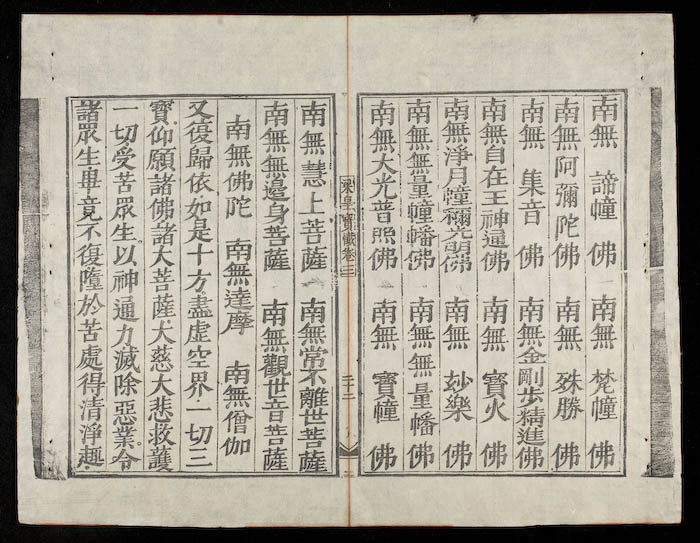 南無 諦幢 佛 南無 梵幢 佛
南無阿彌陀佛 南無 殊勝 佛
南無 集音 佛 南無金剛步精進佛
南無自在王神通佛 南無 寶火 佛
南無淨月幢稱光明佛 南無 妙樂 佛
南無無量幢幡佛 南無無量幡 佛
南無大光普照佛 南無 寶幢 佛
梁皇寶懺卷三 三十二
南無慧上菩薩 南無常不離世菩薩
南無無邊身菩薩 南無觀世音菩薩
南無佛陀 南無達摩 南無僧伽
又復歸依如是十方盡虛空界一切三
寶仰願諸佛諸大菩薩大慈大悲救護
一切受苦眾生以神通力滅除惡業令
諸眾生畢竟不復墮於苦處得清淨趣